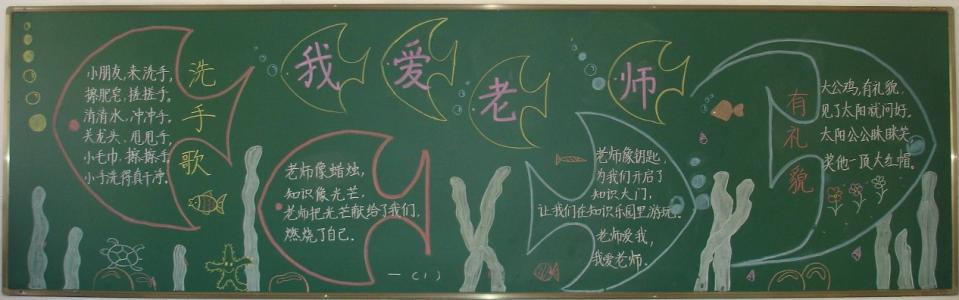 我爱老师
洗手歌
小朋友，来洗手，
擦肥皂，搓搓手。
清清水，冲冲手。
关龙头，甩甩手，
小毛巾，擦擦手，
小手洗得真干净。
老师像蜡烛，
知识像光芒，
老师把光芒献给了我们，
燃烧了自己．
一（1）
老师像钥匙，
为我们开启了
知识大门，
让我们在知识乐园里游玩。
老师爱我，
我爱老师．
有礼貌
大公鸡，有礼貌，
见了太阳就问好。
太阳公公眯眯笑，
奖他一顶大红帽。